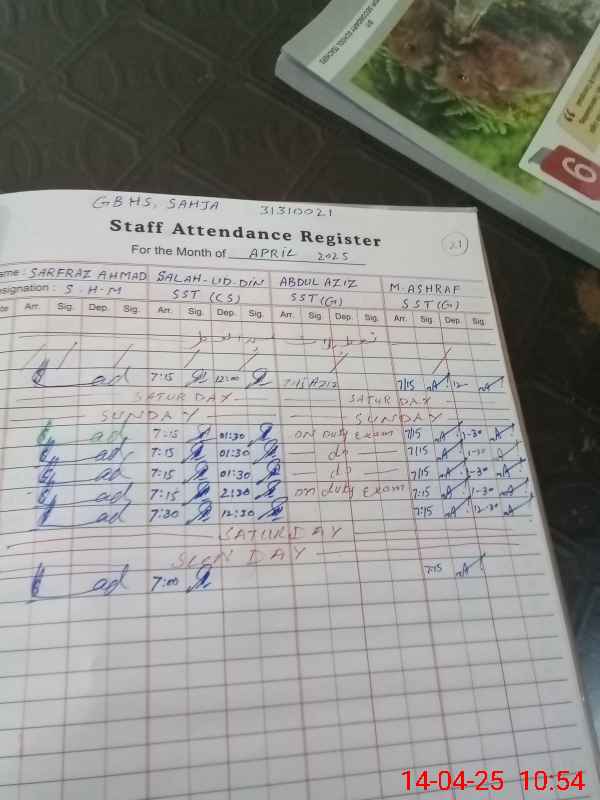 BY:
HER SECONDARY SCHOOL TEACHERS
9
GBHS, SAHJA 31310021
Staff Attendance Register
For the Month of APRIL 2025
21
ame : SARFRAZ AHMAD SALAH-UD-DIN ABDUL AZIZ M. ASHRAF
esignation : S.H.M SST (CS) SST(G) SST(G)
Arr. Sig. Dep. Sig. Arr. Sig. Dep. Sig. Arr. Sig. Dep. Sig. Arr. Sig. Dep. Sig.
ad 7:15 12:00 Aziz 7/15 12-
SATURDAY SATURDAY
SUNDAY SUNDAY
ad 7:15 01:30 on Duty exam 7/15 1-30
ad 7:15 01:30 do 7/15 1-30
ad 7:15 01:30 do 7/15 1-30
ad 7:15 2:30 on duty exam 7:15 1-30
ad 7:30 12:30 7:15 12-30
SATURDAY
SUNDAY
ad 7:00 7:15
14-04-25 10:54